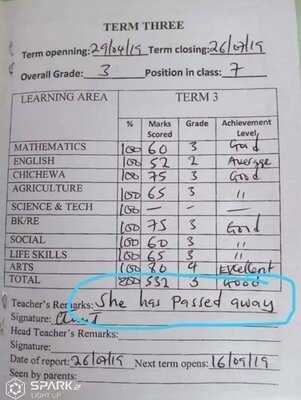 TERM THREE
Term openning: 29/04/19 Term closing: 26/07/19
Overall Grade: 3 Position in class: 7
LEARNING AREA TERM 3
% Marks Scored Grade Achievement Level
MATHEMATICS 100 60 3 Good
ENGLISH 100 52 2 Average
CHICHEWA 100 75 3 Good
AGRICULTURE 100 65 3 "
SCIENCE & TECH 100 — — —
BK/RE 100 75 3 Good
SOCIAL 100 60 3 "
LIFE SKILLS 100 65 3 "
ARTS 100 80 4 Excellent
TOTAL 800 532 3 Good
Teacher's Remarks: She has passed away
Signature:
Head Teacher's Remarks:
Signature:
Date of report: 26/07/19 Next term opens: 16/09/19
Seen by parents:
SPARK
LIGHT UP